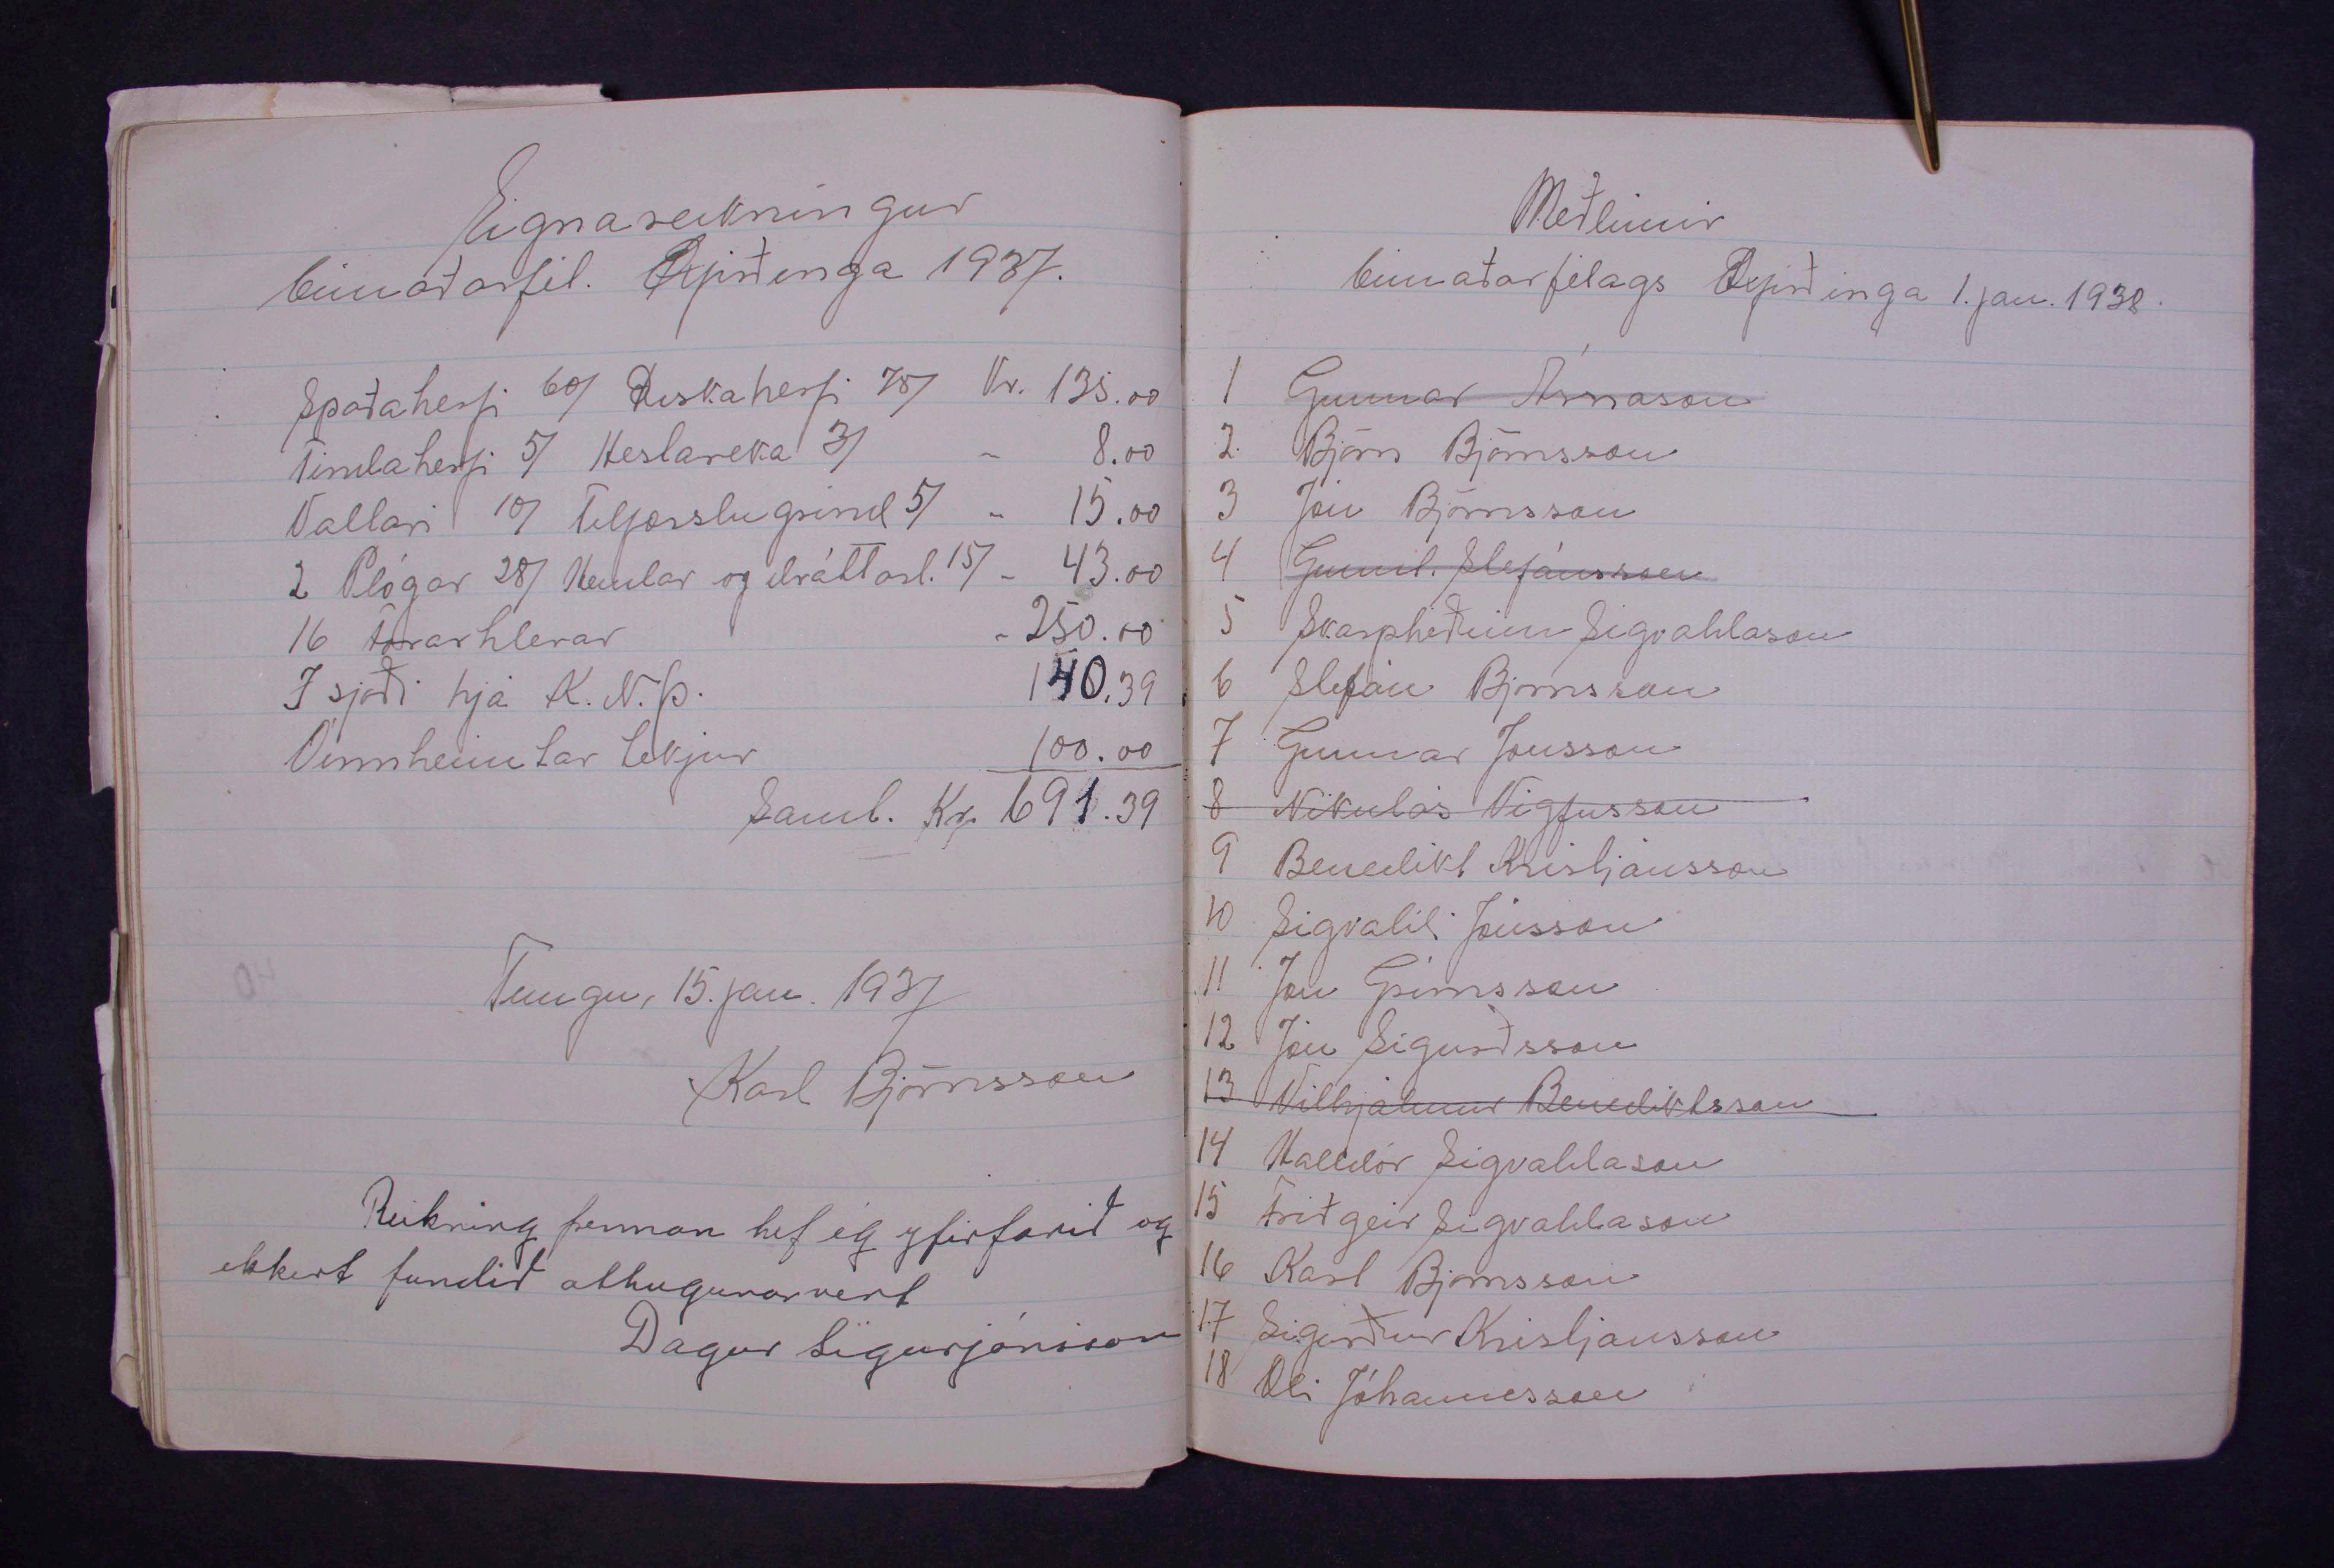 Eignareikningur
búnaðarfél. Öxfirðinga 1937.
Spaðaherfi 60/ Diskaherfi 75/ Kr. 135.00
Tindaherfi 5/ Hestareka 3/ - 8.00
Valtari 10/ Tilfærslugrind 5/ - 15.00
2 Plógar 28/ Hemlar og dráttarl. 15/ - 43.00
16 hlerar - 250.00
I sjóði hjá K.N.Þ. 140.39
Óinnheimtar tekjur 100.00
Saml. Kr. 691.39
Tungu, 15. jan. 1937
Karl Björnsson
Reikning þennan hef ég yfirfarið og
ekkert fundið athugunarvert
Dagur Sigurjónsson
40
Meðlimir
búnaðarfélags Öxfirðinga 1. jan. 1938.
1 Gunnar Árnason
2 Björn Björnsson
3 Jón Björnsson
4 Gunnl. Stefánsson
5 Skarphéðinn Sigvaldason
6 Stefán Björnsson
7 Gunnar Jónsson
8 Nikulás Vigfusson
9 Benedikt Kristjánsson
10 Sigvaldi Jónsson
11 Jón Grímsson
12 Jón Sigurðsson
13 Vilhjálmur Benediktsson
14 Halldór Sigvaldason
15 Friðgeir Sigvaldason
16 Karl Björnsson
17 Sigurður Kristjánsson
18 Óli Jóhannesson